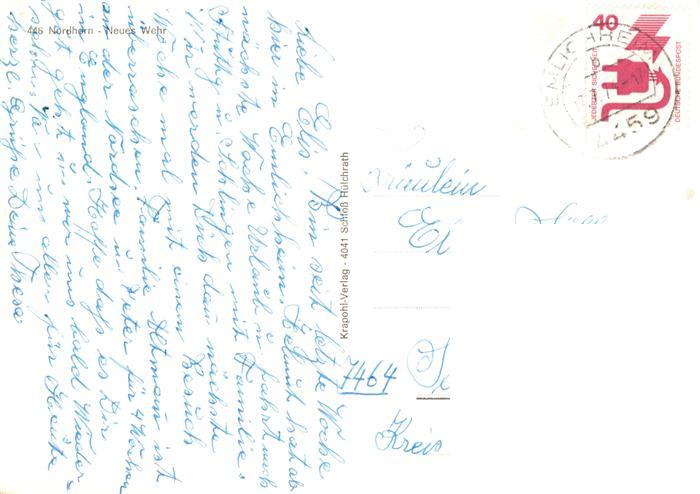 446 Nordhorn - Neues Wehr
Liebe Elis! Bin seit letzte Woche
hier in Emlichheim. Helmut hat ab
nächste Woche Urlaub u. fährt nach
Stuttg. u. Ichlingen mit Familie
Wir werden Dich dann nächste
Woche mal mit einem Besuch
überraschen. Familie Altmann ist
an der Nordsee u. Peter für 4 Wochen
in England. Hoffe daß es Dir
gut geht u. wir uns bald Wieder-
sehn. Ja - uns allen für Heute
herzl. Grüsse Deine Thesa
Krapohl-Verlag - 4041 Schloß Hülchrath
40
JEDERZEIT SICHERHEIT
DEUTSCHE BUNDESPOST
EMLICHHEIM
4459
Fräulein
El
7464
Kreis